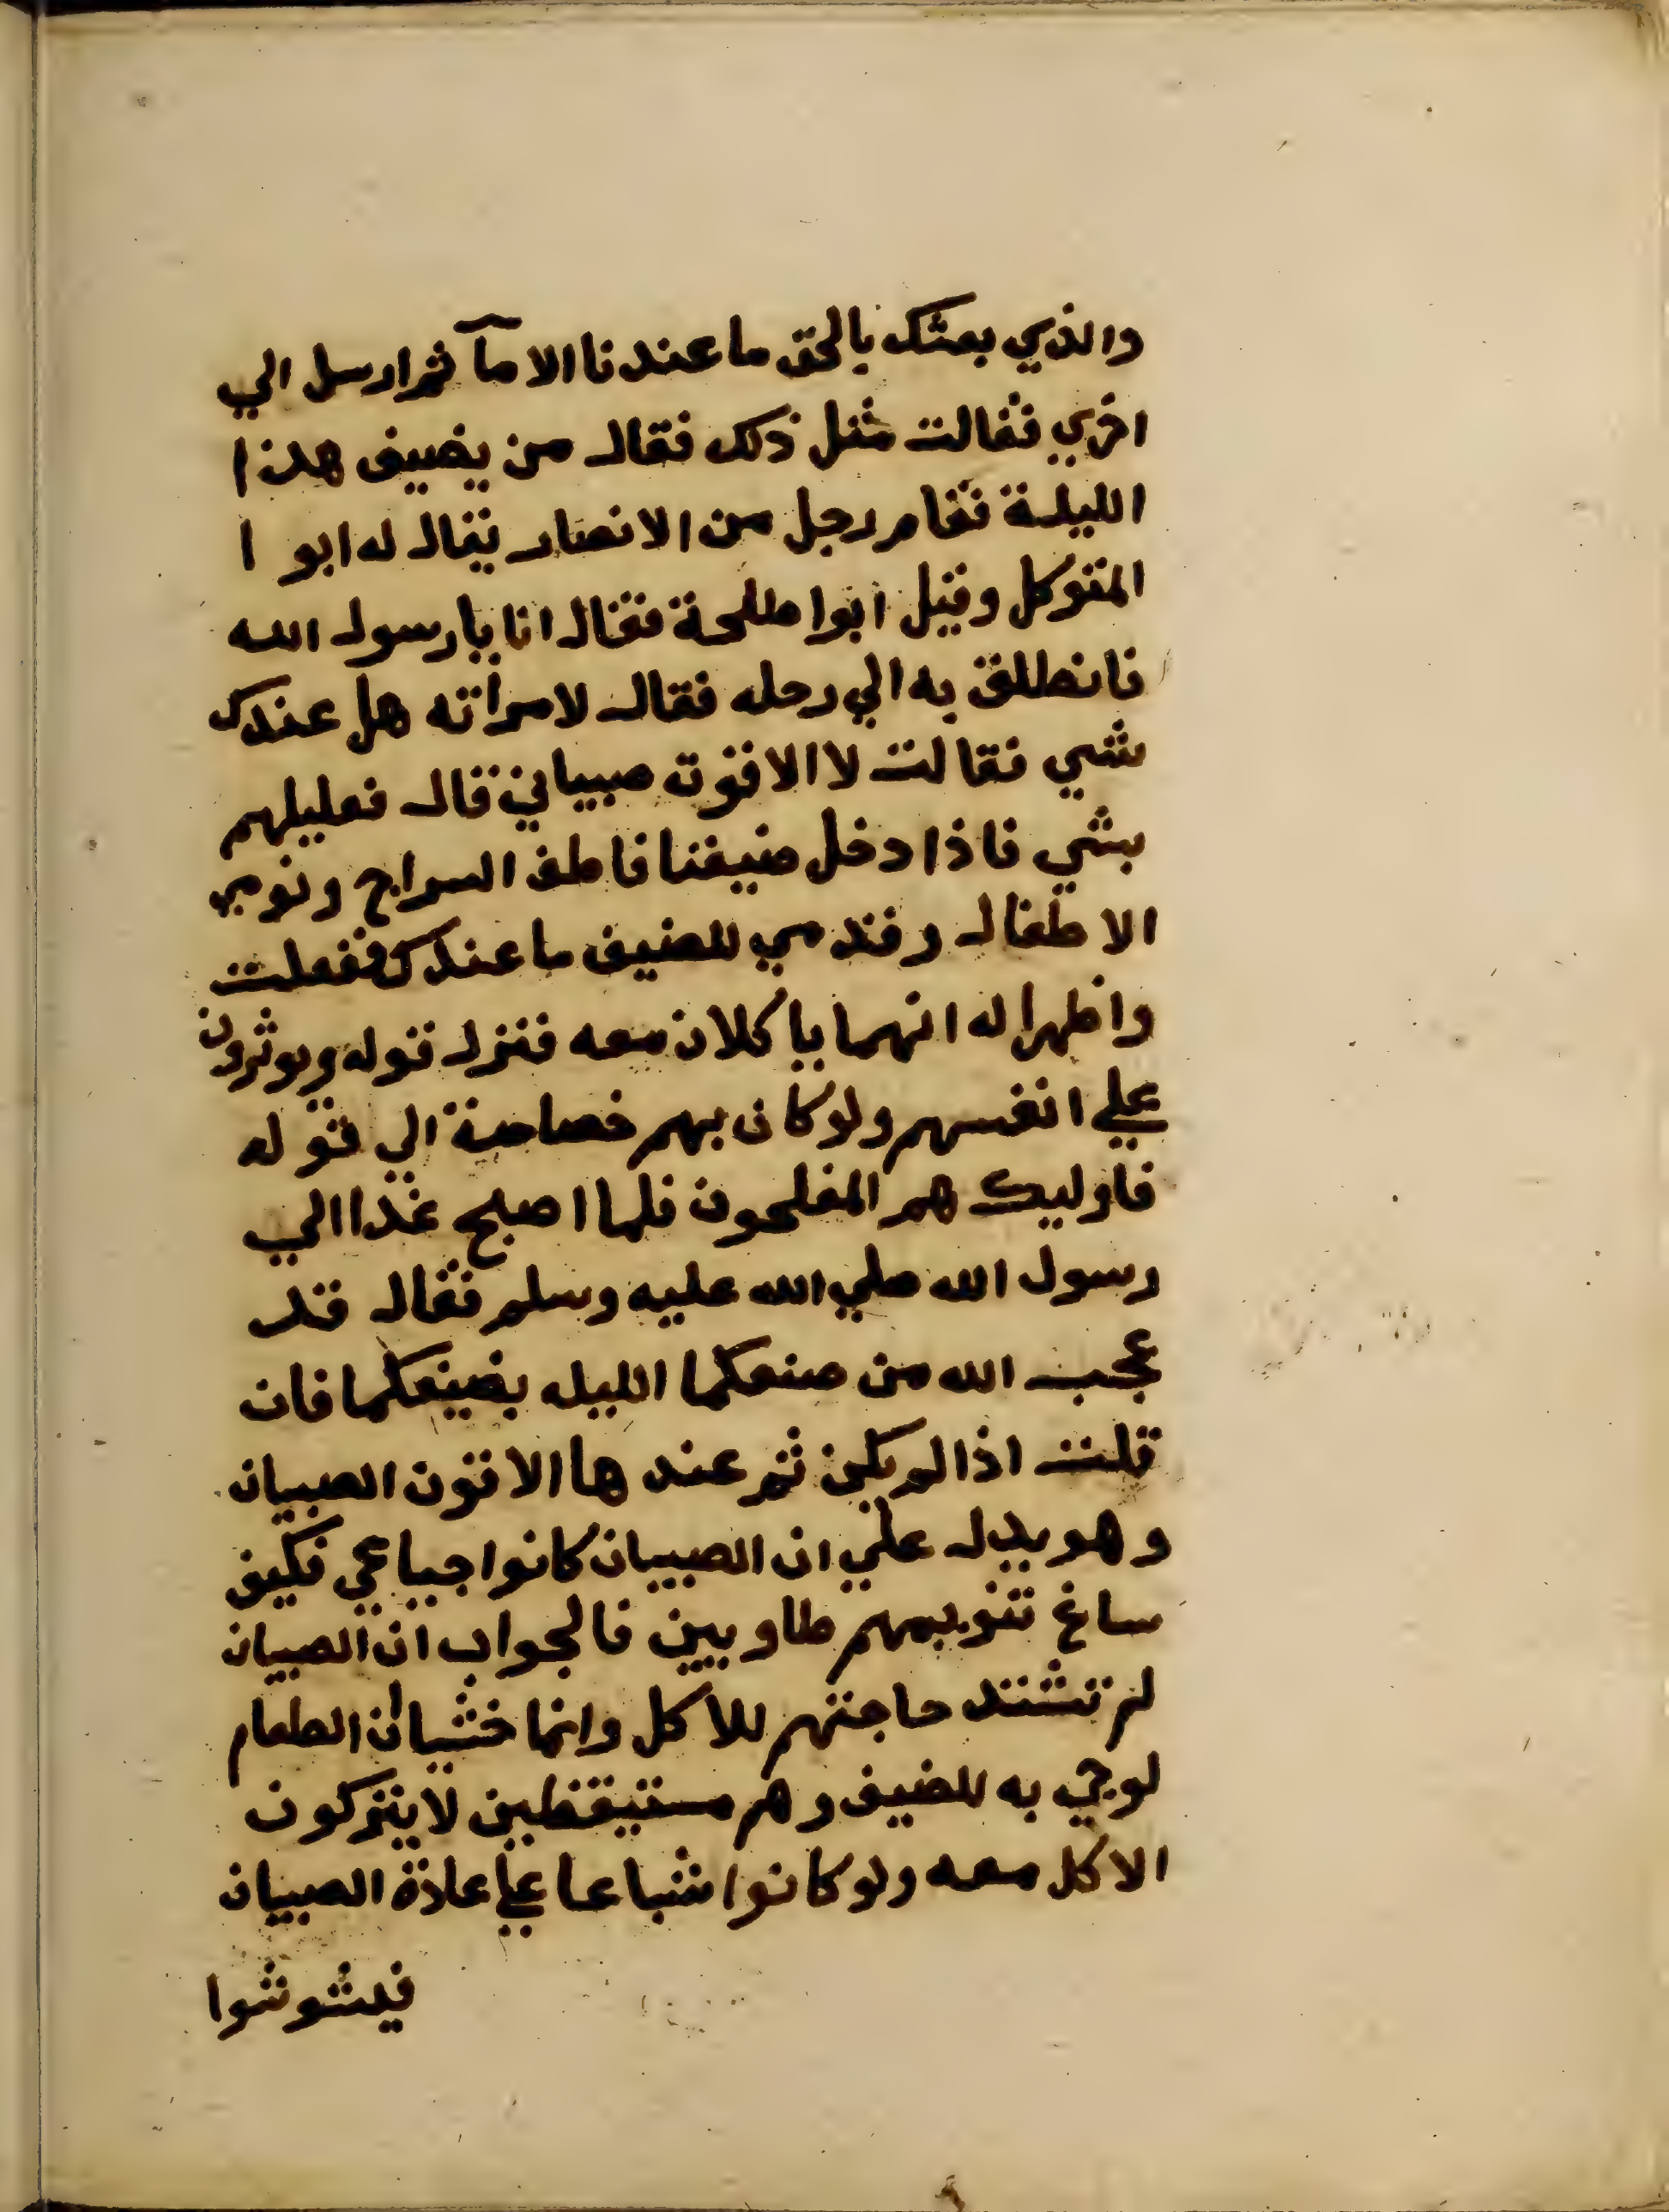 والذي بعثك بالحق ما عندنا الا مآ ثم ارسل الي
اخري فقالت مثل ذلك فقال من يضيف هذا
الليلة فقام رجل من الانصار يقال له ابو ا
المتوكل وقيل ابوا طلحة فقال انا يا رسول الله
فانطلق به الي رحله فقال لامراته هل عندك
شي فقالت لا الا قوت صبياني قال فعليلهم
بشي فاذا دخل ضيفنا فاطف السراج ونومي
الاطفال وقدمي للضيف ما عندك ففعلت
واظهرا له انهما ياكلان معه فنزل قوله ويوثرون
علي انفسهم ولو كان بهم خصاصة الي قوله
فاوليك هم المفلحون فلما اصبح غدا الي
رسول الله صلي الله عليه وسلم فقال قد
عجب الله من صنعكما الليله بضيفكما فان
قلت اذا لم يكن ثم عندها الا قوت الصبيان
وهو يدل علي ان الصبيان كانوا جياعي فكيف
ساغ تنويمهم طاويين فالجواب ان الصبيان
لم تشتد حاجتهم للاكل وانما خشيا ان الطعام
لو جي به للضيف وهم مستيقظين لا يتركون
الاكل معه ولو كانوا شباعا علي عادة الصبيان
فيشوشوا